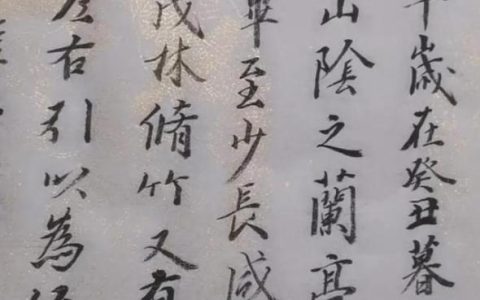 年歲在癸丑暮
山陰之蘭亭
畢至少長咸
茂林脩竹又有
左右引以為